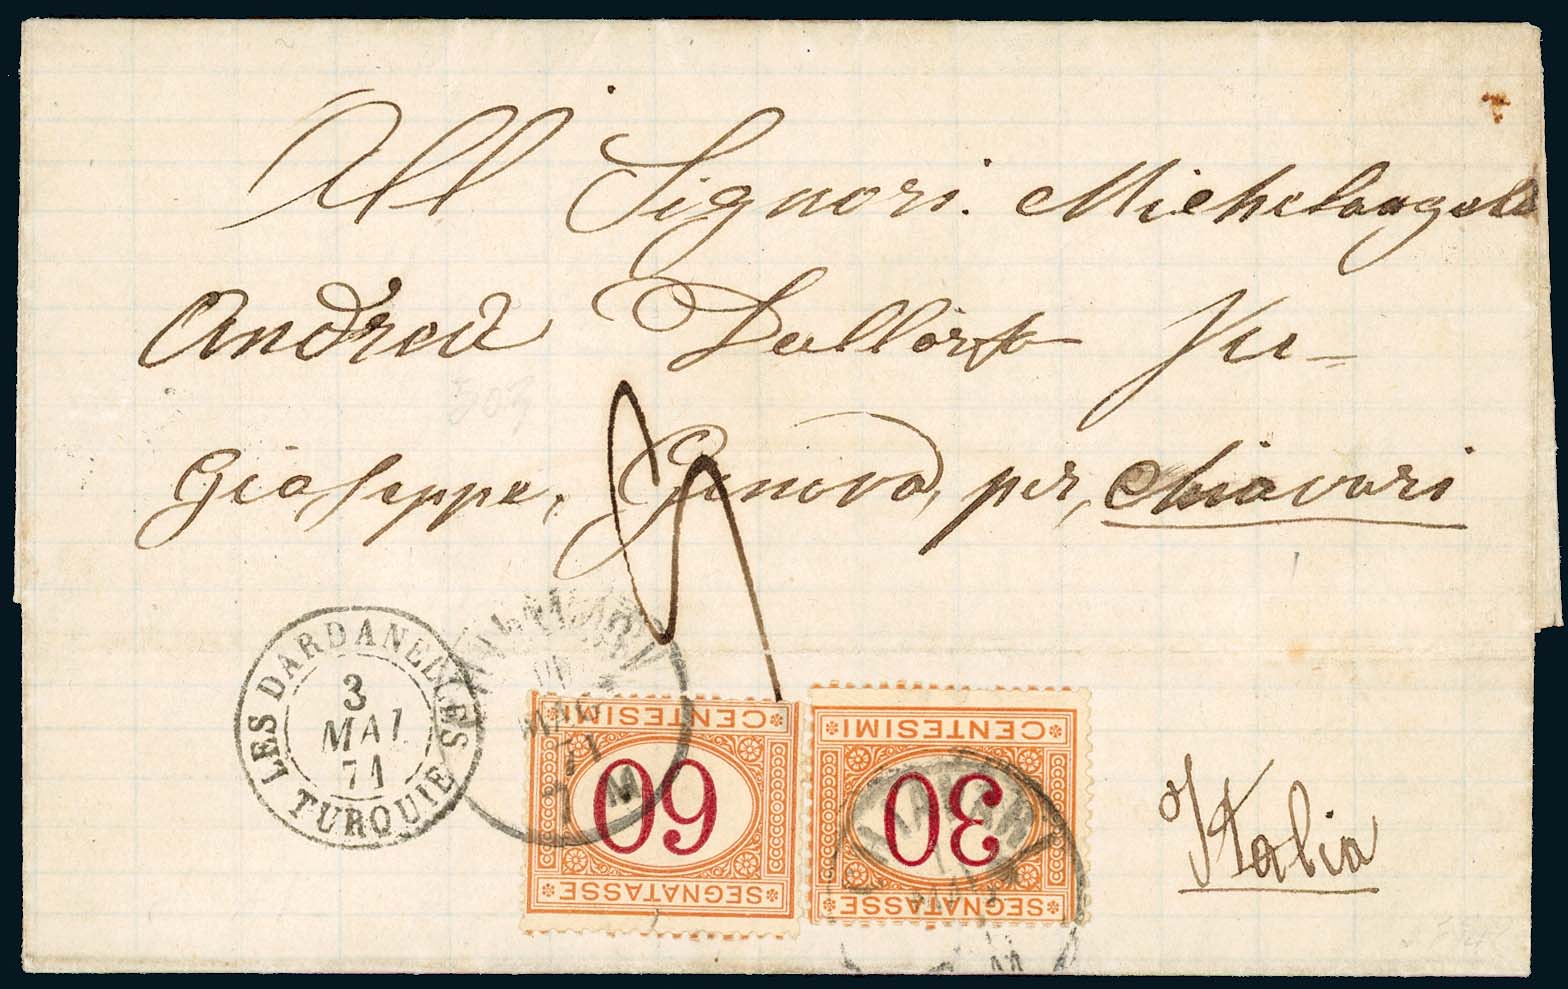 All Signori. Michelangelo
Andrea Dallorso fu-
Gioseppe, Genova, per, Chiavari
303
LES DARDANELLES
3
MAI
71
TURQUIE
71
M
CENTESIMI
60
SEGNATASSE
CENTESIMI
30
SEGNATASSE
CHIAVARI
Italia